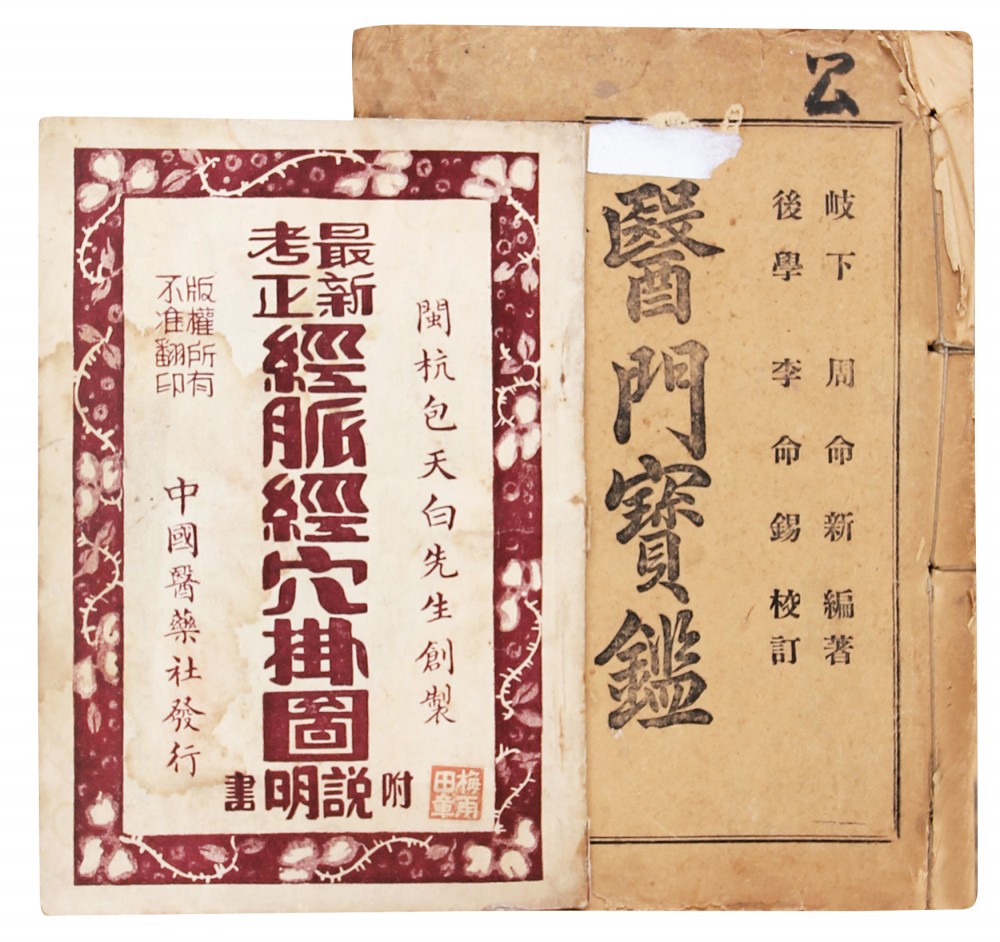 閩杭包天白先生創製
最新
考正
經脈經穴掛圖
附説明書
版權所有
不准翻印
中國醫藥社發行
公
岐下 周命新編著
後學 李命錫校訂
醫門寶鑑